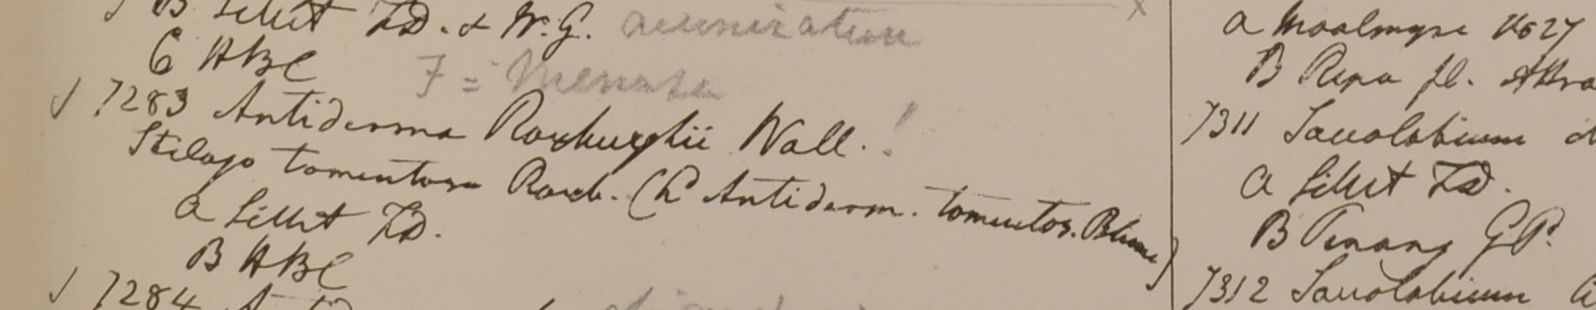 B Sillet F.D. & W.G. acuminatum
C HBC
F = Menasu
7283 Antidesma Roxburghii Wall. !
Stilago tomentosa Roxb. (h Antidesm. tomentos. Blume)
a Sillet F.D.
B HBC
7284 Antid
a Moalmyne 1827
B Ripa fl.
7311 Saccolobium
a Sillet F.D.
B Penang G.P.
7312 Saccolobium